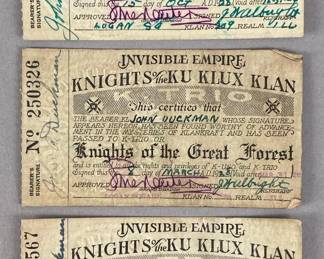 Signed this 15 day of OCT
APPROVED
LOGAN
KLAN No. 209 REALM ILL
BEARER'S SIGNATURE
Nº 250326
INVISIBLE EMPIRE
KNIGHTS of the KU KLUX KLAN
K-TRIO
This certifies that
THE BEARER KL JOHN DUCKMAN WHOSE SIGNATURE
APPEARS HEREON, HAS BEEN FOUND WORTHY OF ADVANCE-
MENT IN THE MYSTERIES OF KLANKRAFT AND HAS BEEN
PASSED TO K-TRIO, OR
Knights of the Great Forest
and is entitled to all the rights and privileges of K-TRIO and K-TRIO
Signed this 8 day of MARCH
APPROVED
KLAN No. REALM
BEARER'S SIGNATURE
567
INVISIBLE EMPIRE
KNIGHTS of the KU KLUX KLAN